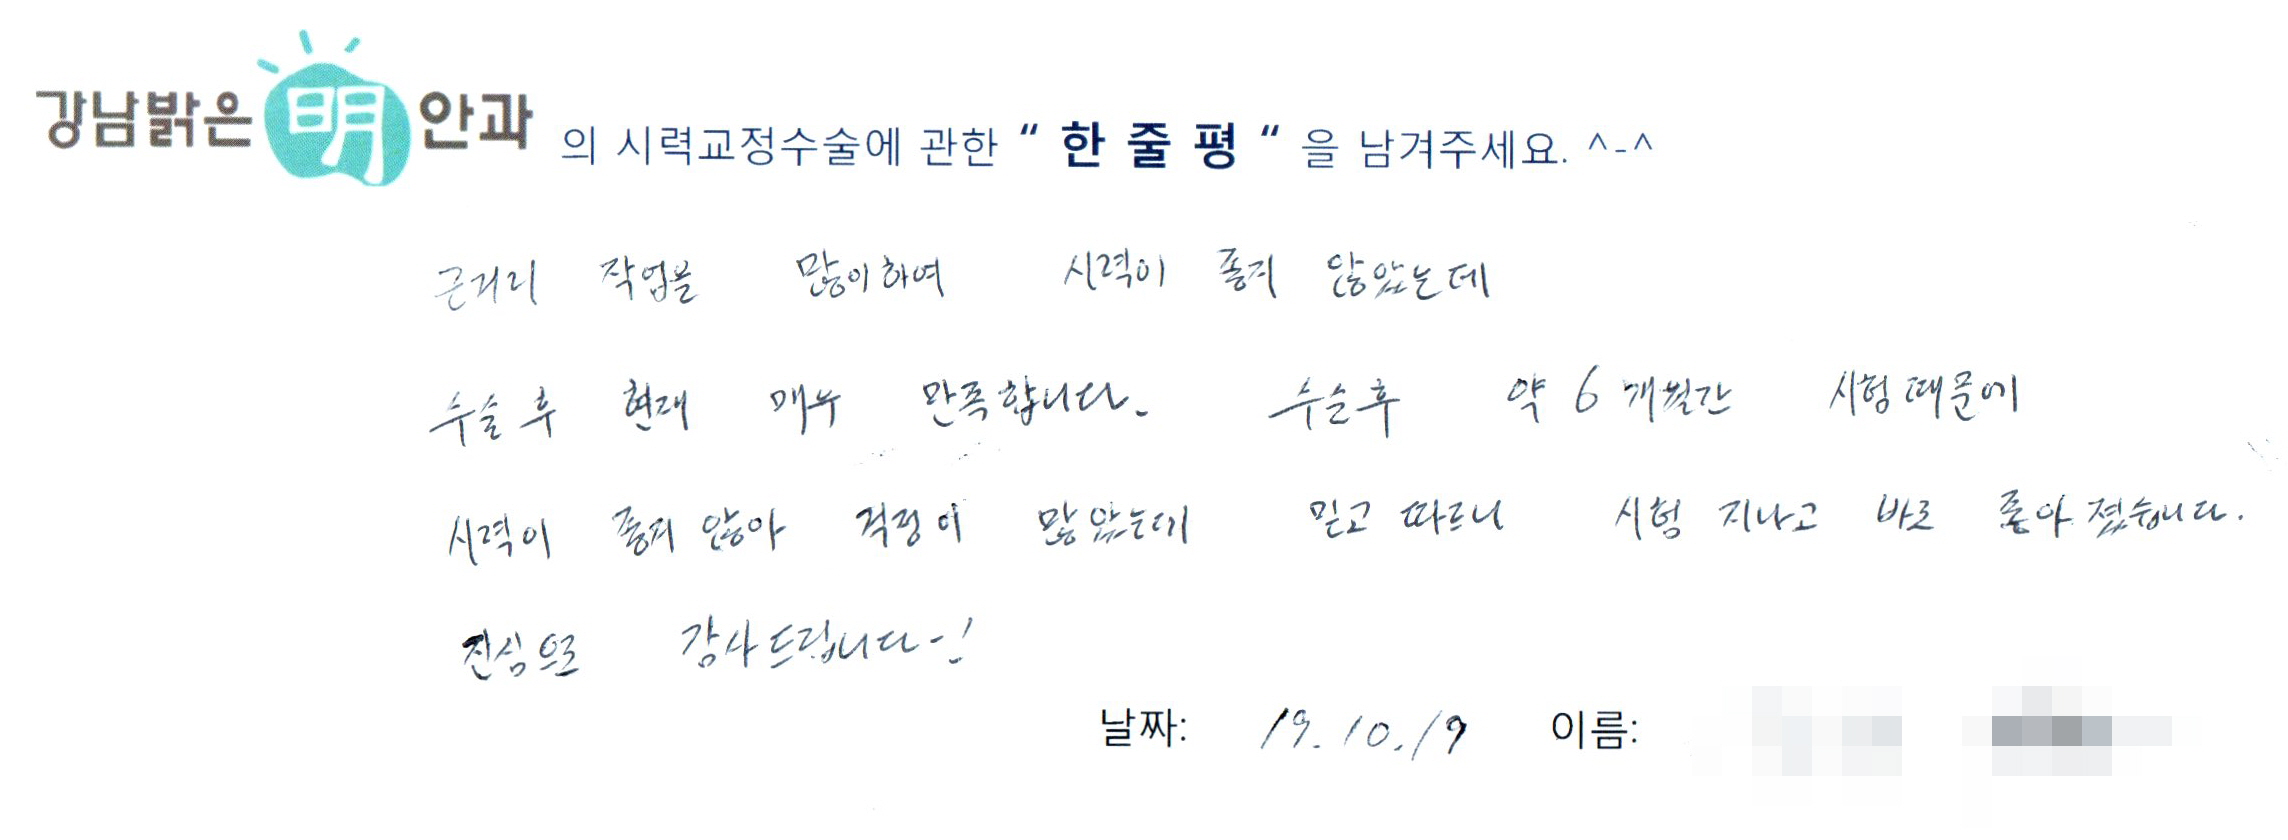 강남밝은明안과 의 시력교정수술에 관한 “ 한 줄 평 “ 을 남겨주세요. ^-^
근거리 작업을 많이하여 시력이 좋지 않았는데
수술 후 현재 매우 만족합니다. 수술후 약 6개월간 시험때문에
시력이 좋지 않아 걱정이 많았는데 믿고 따르니 시험 지나고 바로 좋아졌습니다.
진심으로 감사드립니다-!
날짜: 19.10.19 이름: